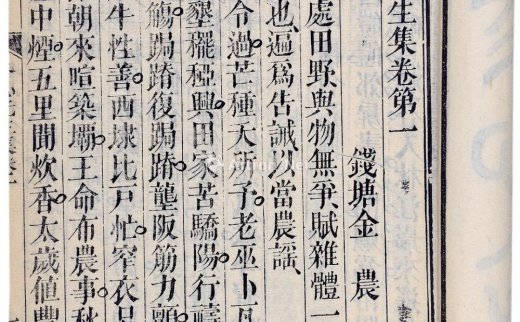 生集卷第一
錢塘金 農
處田野與物無爭賦雜體一
也遍爲告誡以當農謠
令過芒種天所予老巫卜瓦
墾穲稏興田家苦驕陽行禱
觴跼蹐復跼蹐壟阪筋力
牛性善西埭比戶忙窄衣
朝來喧築壩王命布農事秋
中煙五里聞炊香太歲値豐